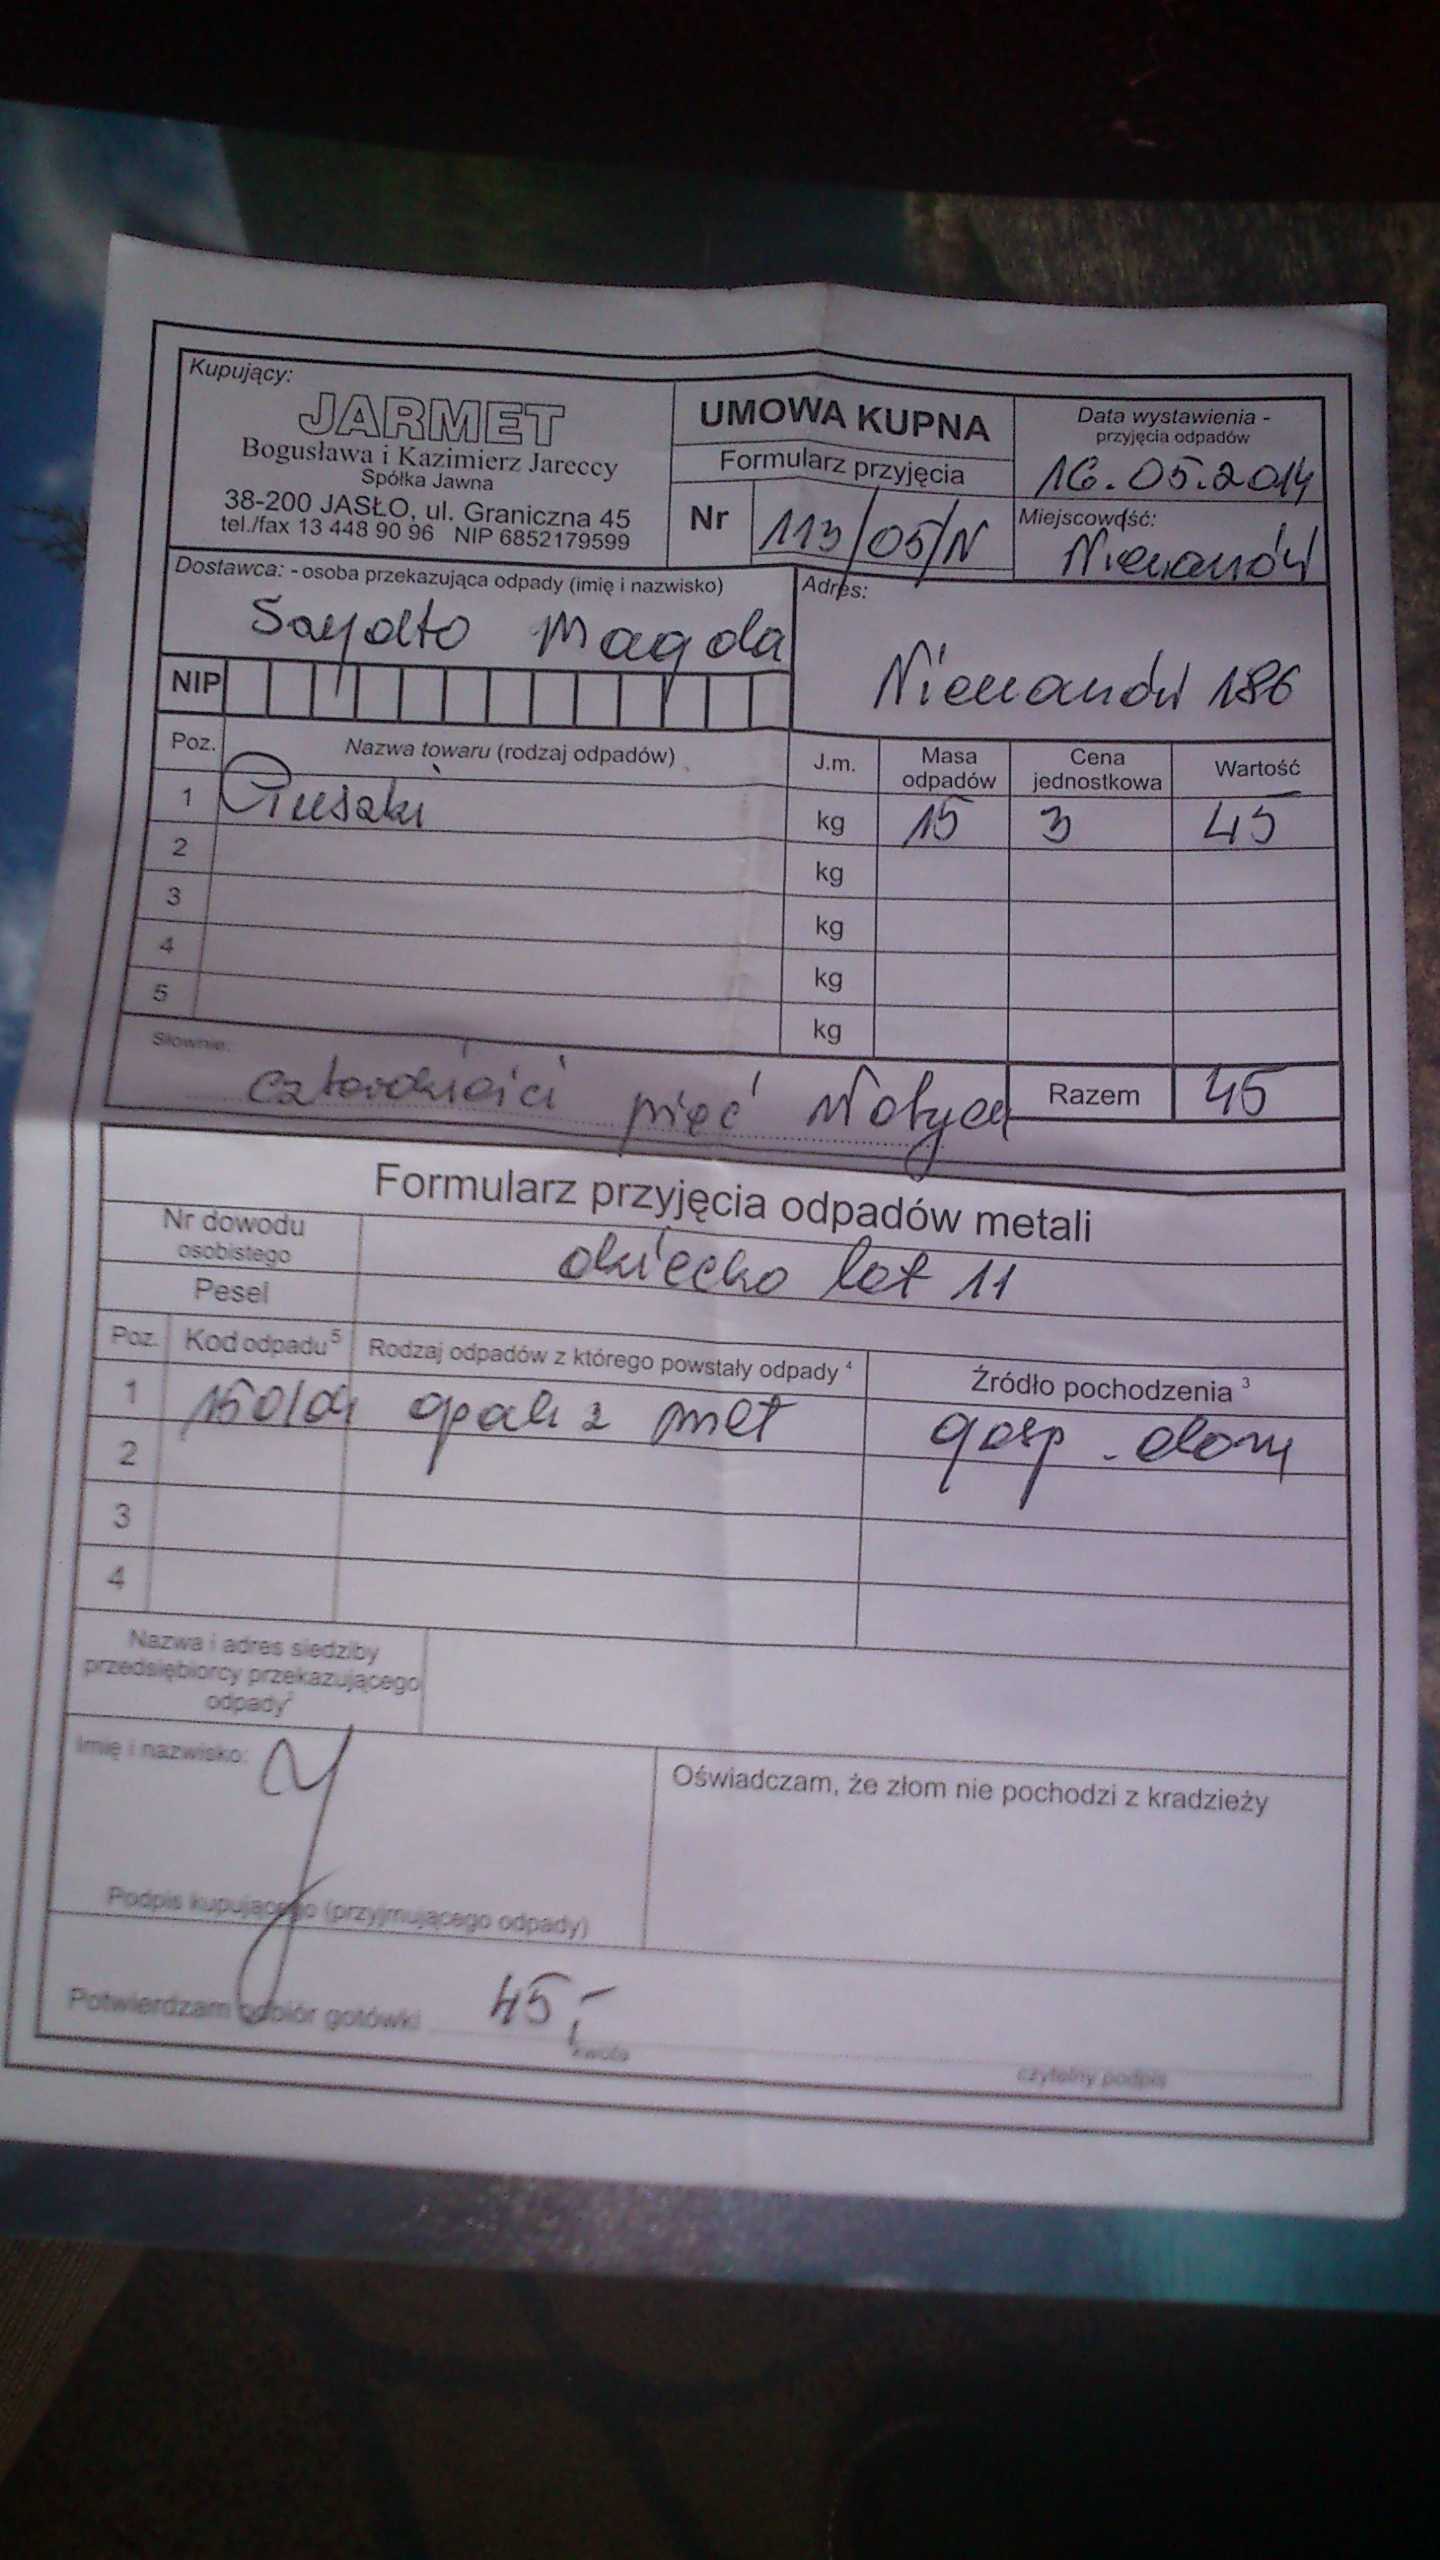 Kupujący:
JARMET
Bogusława i Kazimierz Jareccy
Spółka Jawna
38-200 JASŁO, ul. Graniczna 45
tel./fax 13 448 90 96 NIP 6852179599
UMOWA KUPNA
Formularz przyjęcia
Nr 113/05/N
Data wystawienia -
przyjęcia odpadów
16.05.2014
Miejscowość:
Dostawca: - osoba przekazująca odpady (imię i nazwisko)
Magda
NIP
Adres:
186
Poz. Nazwa towaru (rodzaj odpadów) J.m. Masa odpadów Cena jednostkowa Wartość
1 Puszki kg 15 3 45
2 kg
3 kg
4 kg
5 kg
Słownie: czterdzieści pięć złotych
Razem 45
Formularz przyjęcia odpadów metali
Nr dowodu
osobistego
dziecko lat 11
Pesel
Poz. Kod odpadu 5 Rodzaj odpadów z którego powstały odpady 4 Źródło pochodzenia 3
1 150104 opak z met gosp. dom
2
3
4
Nazwa i adres siedziby
przedsiębiorcy przekazującego
odpady2
Imię i nazwisko:
Oświadczam, że złom nie pochodzi z kradzieży
Podpis kupującego (przyjmującego odpady)
Potwierdzam odbiór gotówki 45,-
kwota
czytelny podpis